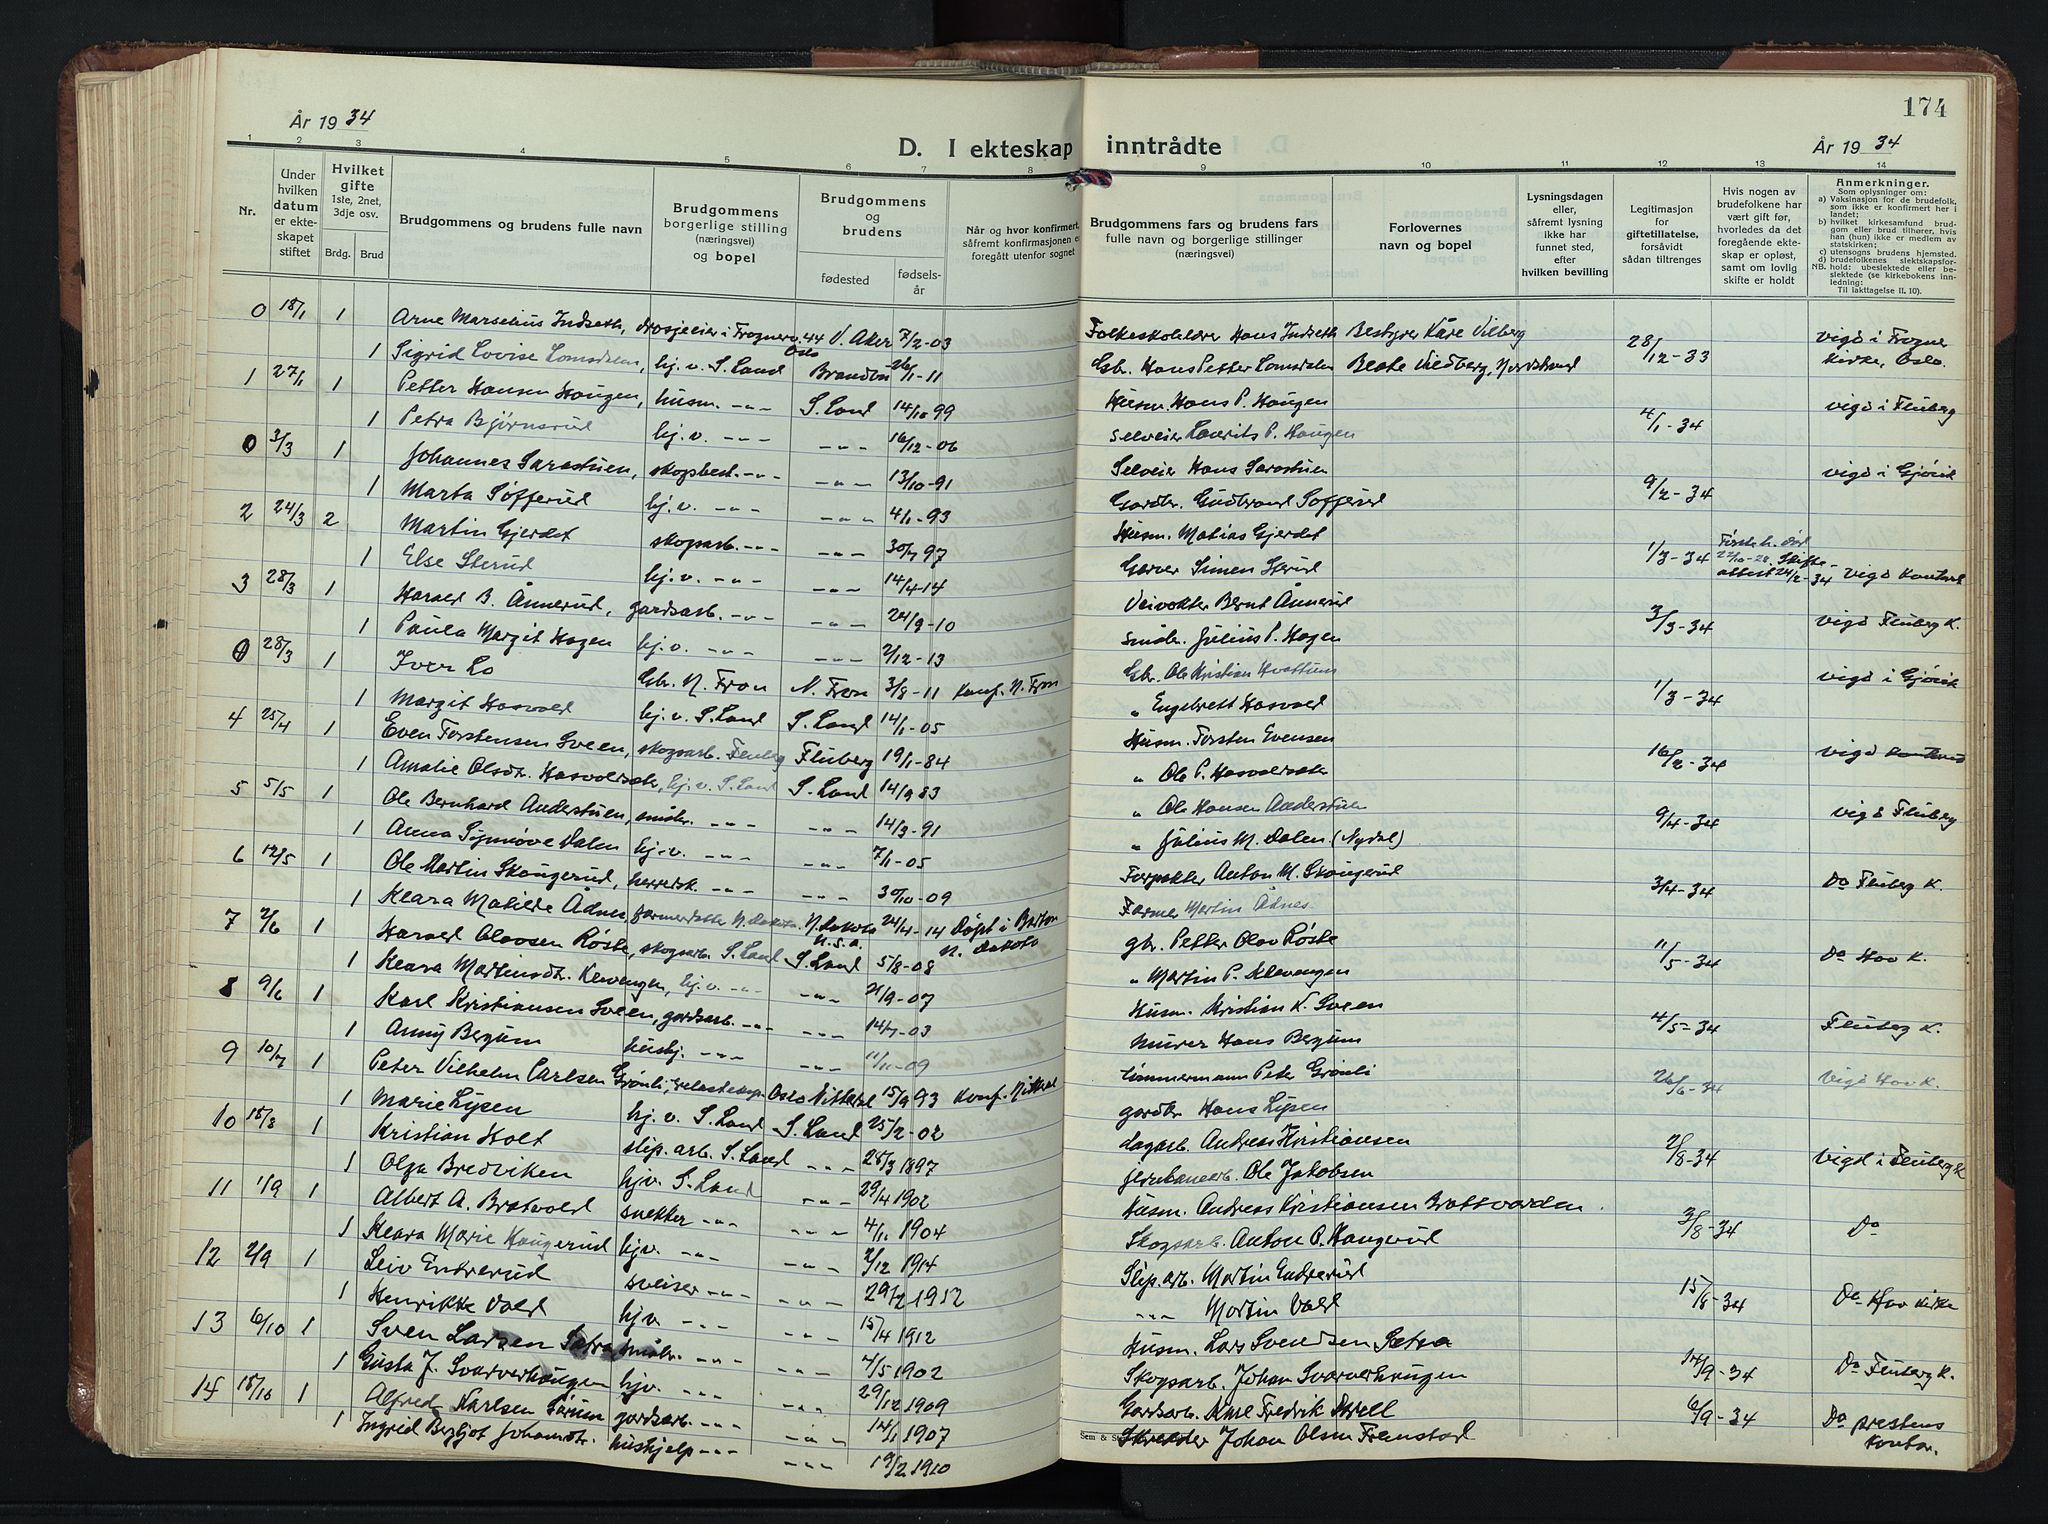 174
År 19 34
D. I ekteskap inntrådte
År 19 34
1 2 3 4 5 6 7 8 9 10 11 12 13 14
Nr.
Under hvilken datum er ekteskapet stiftet
Hvilket gifte 1ste, 2net, 3dje osv.
Brdg. Brud
Brudgommens og brudens fulle navn
Brudgommens borgerlige stilling (næringsvei) og bopel
Brudgommens og brudens
fødested fødselsår
Når og hvor konfirmert, såfremt konfirmasjonen er foregått utenfor sognet
Brudgommens fars og brudens fars fulle navn og borgerlige stillinger (næringsvei)
Forlovernes navn og bopel
Lysningsdagen eller, såfremt lysning ikke har funnet sted, efter hvilken bevilling
Legitimasjon for giftetillatelse, forsåvidt sådan tiltrenges
Hvis nogen av brudefolkene har vært gift før, hvorledes da det foregående ekteskap er opløst, samt om lovlig skifte er holdt
Anmerkninger.
Som oplysninger om:
a) Vaksinasjon for de brudefolk, som ikke er konfirmert her i landet;
b) hvilket kirkesamfund brudgom eller brud tilhører, hvis han (hun) ikke er medlem av statskirken;
c) utensogns brudens hjemsted.
d) brudefolkenes slektskapsforhold: ubeslektede eller beslektede (se kirkebokens innledning:
NB. Til iakttagelse II. 10).
0 18/1 1 Arne Marselius Indseth, drosjeeier i Frognerv. 44 Oslo V. Aker 7/2-03 Folkeskolelærer Hans Indseth Bestyrer Kåre Vilberg 28/12-33 vigd i Frogner kirke, Oslo.
1 Sigrid Lovise Lomsdalen, hj. v. S. Land Brandbu 26/1-11 Gbr. Hans Petter Lomsdalen Beate Vildberg, Nordstrand
1 27/1 1 Petter Hansen Haugen, husm. -"- S. Land 14/10 99 Husm. Hans P. Haugen 4/1-34 vigd i Fluberg
1 Petra Bjørnsrud hj. v. -"- -"- 16/12-06 selveier Laurits P. Haugen
0 3/3 1 Johannes Sarastuen, skogsbest. -"- -"- 13/10-91 Selveier Hans Sarastuen 9/2-34 vigd i Gjøvik
1 Marta Søfferud hj. v. -"- -"- 4/1-93 Gardbr. Gudbrand Søfferud
2 24/3 2 Martin Gjerdet skogsarb. -"- -"- 30/7 97 Husm. Matias Gjerdet 1/3-34 Første h. død 22/10-28. Skifteattest 24/2-34 vigd kontoret
1 Else Sterud hj. v. -"- -"- 14/4-14 Garver Simen Sterud
3 28/3 1 Harald B. Ånnerud, gardsarb. -"- -"- 24/9-10 Veivokter Bernt Ånnerud 3/3-34 vigd Fluberg K.
1 Paula Margit Hagen hj. v. -"- -"- 2/12-13 småbr. Julius P. Hagen
0 28/3 1 Iver Lo Gbr. N. Fron N. Fron 3/8-11 Konf. N. Fron Gbr. Ole Kristian Hvattum 1/3-34 vigd i Gjøvik
1 Margit Hasvold hj. v. S. Land S. Land 14/1-05 " Engebrett Hasvold
4 25/4 1 Even Torstensen Sveen, skogsarb. Fluberg Fluberg 19/1-84 Husm. Torsten Evensen 16/2-34 vigd kontoret
1 Amalie Olsdtr. Hasvoldseie, hj. v. S. Land S. Land 14/9 83 " Ole P. Hasvoldseie
5 5/5 1 Ole Bernhard Anderstuen, småbr. -"- -"- 14/3-91 " Ole Hansen Anderstuen 9/4-34 vigd Fluberg
1 Anna Synnøve Dalen hj. v. -"- -"- 7/1-05 " Julius M. Dalen (Nydal)
6 12/5 1 Ole Martin Skaugerud, herredsk. -"- -"- 30/10-09 Forpakter Anton M. Skaugerud 3/4-34 Do Fluberg K.
1 Klara Matilde Ådnes, farmerdatter N. Dakota N. Dakota U.S.A. 24/4-14 Døpt i Barton N. Dakota Farmer Martin Ådnes
7 2/6 1 Harald Olavsen Røste, skogsarb. S. Land S. Land 5/8-08 gbr. Petter Olav Røste 11/5-34 Do Hov K.
1 Klara Martinsdtr. Klevengen, hj. v. -"- -"- 21/9-07 " Martin P. Klevengen
8 9/6 1 Karl Kristiansen Sveen, gardsarb. -"- -"- 14/7-03 Husm. Kristian K. Sveen 4/5-34 Fluberg K.
1 Anny Bergum hushj. -"- -"- 11/11-09 murer Hans Bergum
9 10/7 1 Peter Vilhelm Carlsen Grønli, Oslo Nittedal 15/9 93 Konf. Nittedal tømmermann Peter Grønli 26/6-34 Vigd Hov K.
1 Marie Lysen hj. v. S. Land S. Land 25/2-02 gardbr. Hans Lysen
10 18/8 1 Kristian Holt slip. arb. S. Land -"- 28/3 1897 dagarb. Andreas Kristiansen 2/8-34 Vigd i Fluberg K
1 Olga Bredviken hjv. S. Land -"- 29/4 1902 jernbanearb. Ole Jakobsen
11 1/9 1 Albert A. Bratvold snekker -"- -"- 4/1 1904 Husm. Andreas Kristiansen Brattvarden 3/8-34 Do
1 Klara Marie Haugerud hjv. -"- -"- 2/12 1914 Skogsarb. Anton P. Haugerud
12 2/9 1 Leiv Endrerud sveiser -"- -"- 29/2 1912 Slip. arb. Martin Endrerud 15/8-34 Do Hov kirke
1 Henrikke Vold hjv -"- -"- 15/4 1912 -"- Martin Vold
13 6/10 1 Sven Larsen Sætra småbr. -"- -"- 7/5 1902 Husm. Lars Svendsen Sætra 14/9-34 Do Fluberg K.
1 Gusta J. Svarverhaugen hjv. -"- -"- 29/12 1909 Skogsarb. Johan Svarverhaugen
14 18/10 1 Alfred Karlsen Sørum gardsarb. -"- -"- 14/1 1907 Gardsarb. Karl Fredrik 6/9-34 Do prestens kontor.
1 Ingrid Bergljot Johansdtr. hushjelp -"- -"- 19/2 1910 Skredder Johan Olsen Fremstad
Sem & St